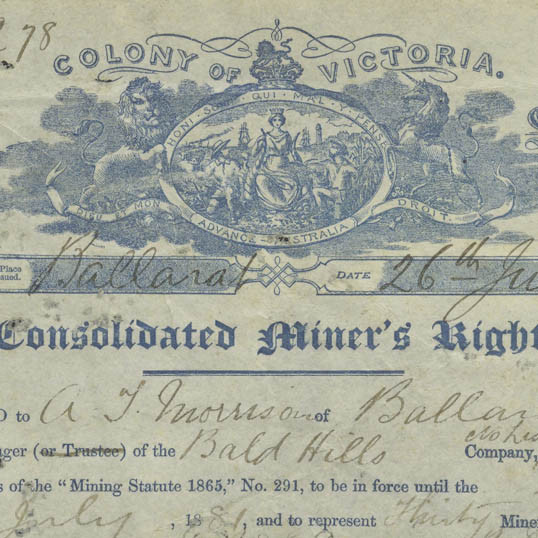 78
COLONY OF VICTORIA.
HONI SOIT QUI MAL Y PENSE
DIEU ET MON DROIT.
ADVANCE AUSTRALIA
Place
sued. Ballarat DATE 26th Ju
Consolidated Miner's Right
D to A T. Morrison of Ballar
ger (or Trustee) of the Bald Hills
Company,
s of the “Mining Statute 1865,” No. 291, to be in force until the
July , 1881, and to represent Thirty Mine